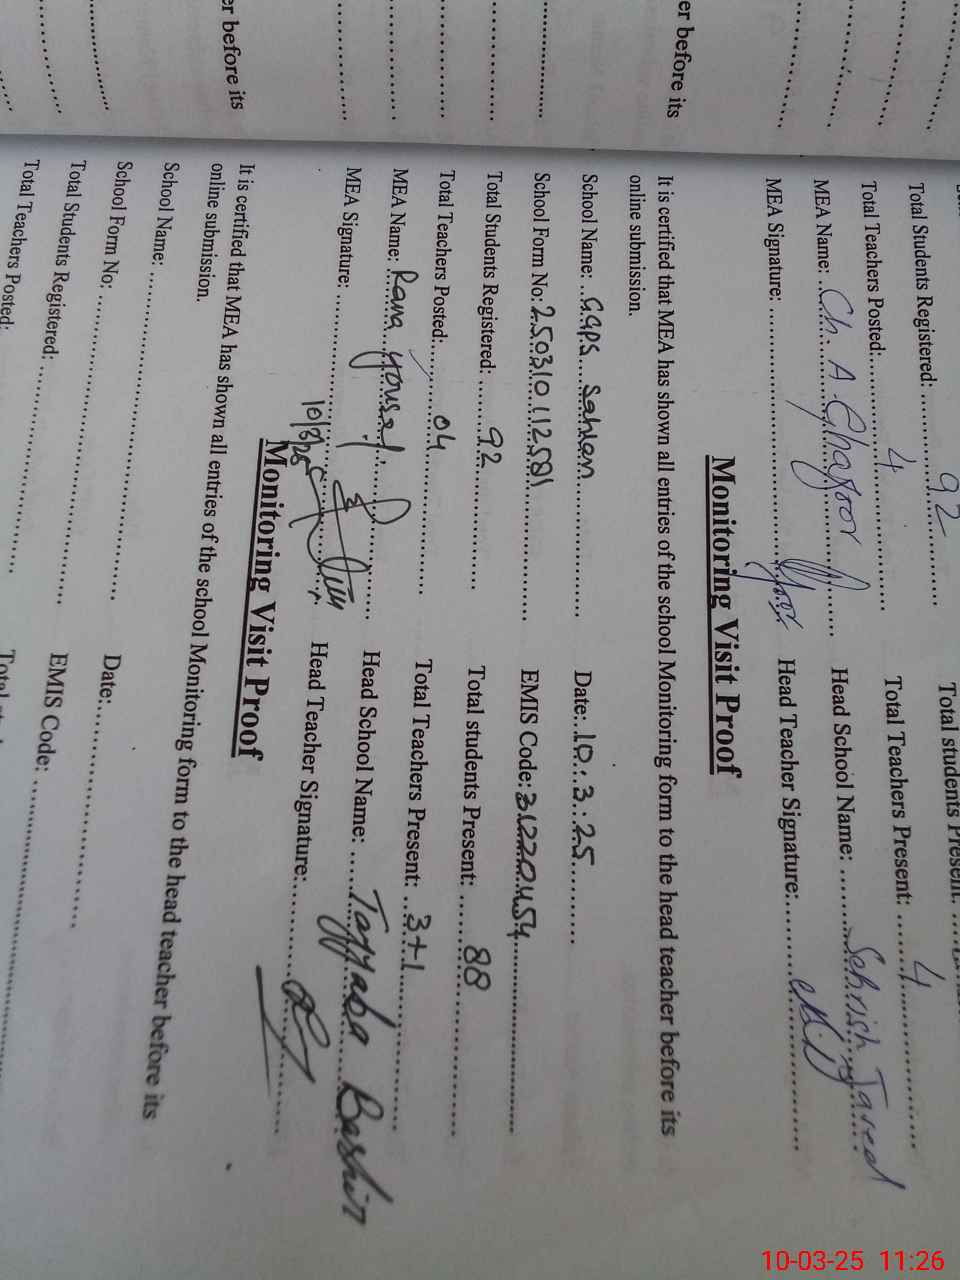 er before its
er before its
Total Students Registered: 92
Total students Present:
Total Teachers Posted: 4
Total Teachers Present: 4
MEA Name: Ch. A. Ghafoor
Head School Name: Sehrish Javed
MEA Signature:
Head Teacher Signature:
Monitoring Visit Proof
It is certified that MEA has shown all entries of the school Monitoring form to the head teacher before its
online submission.
School Name: GGPS Sahlan
Date: 10.3.25
School Form No: 250310112581
EMIS Code: 31220454
Total Students Registered: 92
Total students Present: 88
Total Teachers Posted: 04
Total Teachers Present: 3+1
MEA Name: Rana Yousaf
Head School Name: Tayyaba Bashir
MEA Signature:
10/3/25
Head Teacher Signature:
Monitoring Visit Proof
It is certified that MEA has shown all entries of the school Monitoring form to the head teacher before its
online submission.
School Name:
Date:
School Form No:
EMIS Code:
Total Students Registered:
Total Teachers Posted:
10-03-25 11:26